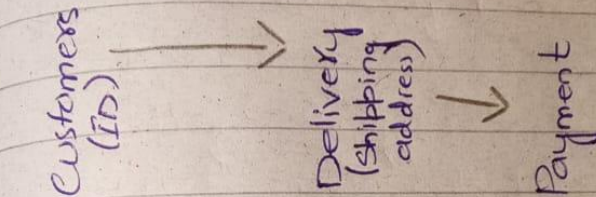 Customers
(ID)
Delivery
(Shipping
address)
Payment